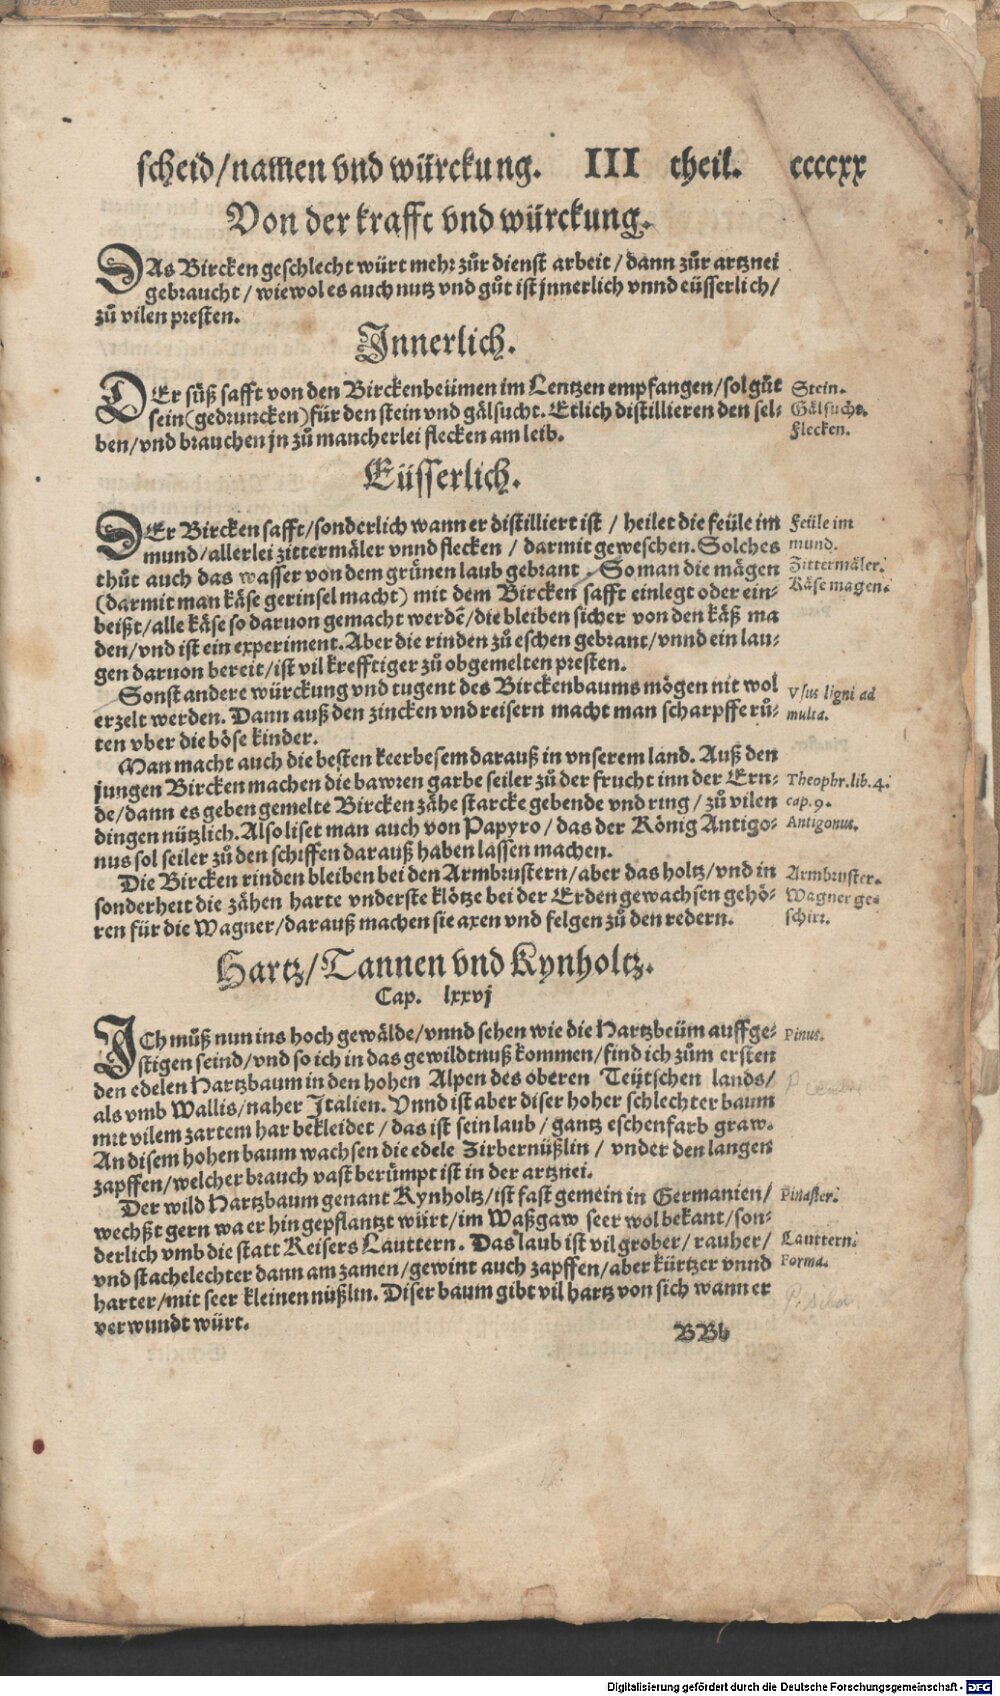 scheid/namen vnd würckung. III theil. ccccxx
Von der krafft vnd würckung.
DAs Bircken geschlecht würt mehr zůr dienst arbeit/dann zůr artznei
gebraucht/wiewol es auch nutz vnd gůt ist jnnerlich vnnd eüsserlich/
zů vilen presten.
Jnnerlich.
DEr süß safft von den Birckenbeümen im Lentzen empfangen/sol gůt
sein (gedruncken) für den stein vnd gälsucht. Etlich distillieren den sel-
ben/vnd brauchen jn zů mancherlei flecken am leib.
Stein.
Gälsucht.
Flecken.
Eüsserlich.
DEr Bircken safft/sonderlich wann er distilliert ist/heilet die feüle im
mund/allerlei zittermäler vnnd flecken/darmit geweschen. Solches
thůt auch das wasser von dem grünen laub gebrant. So man die mägen
(darmit man käse gerinsel macht) mit dem Bircken safft einlegt oder ein-
beißt/alle käse so daruon gemacht werdē/die bleiben sicher von den käß ma
den/vnd ist ein experiment. Aber die rinden zů eschen gebrant/vnnd ein lau-
gen daruon bereit/ist vil krefftiger zů obgemelten presten.
Feüle im
mund.
Zittermäler.
Käse magen.
Sonst andere würckung vnd tugent des Birckenbaums mögen nit wol
erzelt werden. Dann auß den zincken vnd reisern macht man scharpffe rů-
ten vber die böse kinder.
Vsus ligni ad
multa.
Man macht auch die besten keerbesem darauß in vnserem land. Auß den
jungen Bircken machen die bawren garbe seiler zů der frucht inn der Ern-
de/dann es geben gemelte Bircken zähe starcke gebende vnd ring/zů vilen
dingen nützlich. Also liset man auch von Papyro/das der König Antigo-
nus sol seiler zů den schiffen darauß haben lassen machen.
Theophr. lib. 4.
cap. 9.
Antigonus.
Die Bircken rinden bleiben bei den Armbrustern/aber das holtz/vnd in
sonderheit die zähen harte vnderste klötze bei der Erden gewachsen gehö-
ren für die Wagner/darauß machen sie axen vnd felgen zů den redern.
Armbruster.
Wagner ge-
schirr.
Hartz/Tannen vnd Kynholtz.
Cap. lxxvj
JCh můß nun ins hoch gewälde/vnnd sehen wie die Hartzbeüm auffge-
stigen seind/vnd so ich in das gewildtnuß kommen/find ich zům ersten
den edelen Hartzbaum in den hohen Alpen des oberen Teütschen lands/
als vmb Wallis/naher Jtalien. Vnnd ist aber diser hoher schlechter baum
mit vilem zartem har bekleidet/das ist sein laub/gantz eschenfarb graw.
An disem hohen baum wachsen die edele Zirbernüßlin/vnder den langen
zapffen/welcher brauch vast berümpt ist in der artznei.
Pinus.
Der wild Hartzbaum genant Kynholtz/ist fast gemein in Germanien/
wechßt gern wa er hin gepflantzt würt/im Waßgaw seer wol bekant/son-
derlich vmb die statt Keisers Lauttern. Das laub ist vil grober/rauher/
vnd stachelechter dann am zamen/gewint auch zapffen/aber kürtzer vnnd
harter/mit seer kleinen nüßlin. Diser baum gibt vil hartz von sich wann er
verwundt würt.
Pinaster.
Lauttern.
Forma.
BBb
Digitalisierung gefördert durch die Deutsche Forschungsgemeinschaft - DFG